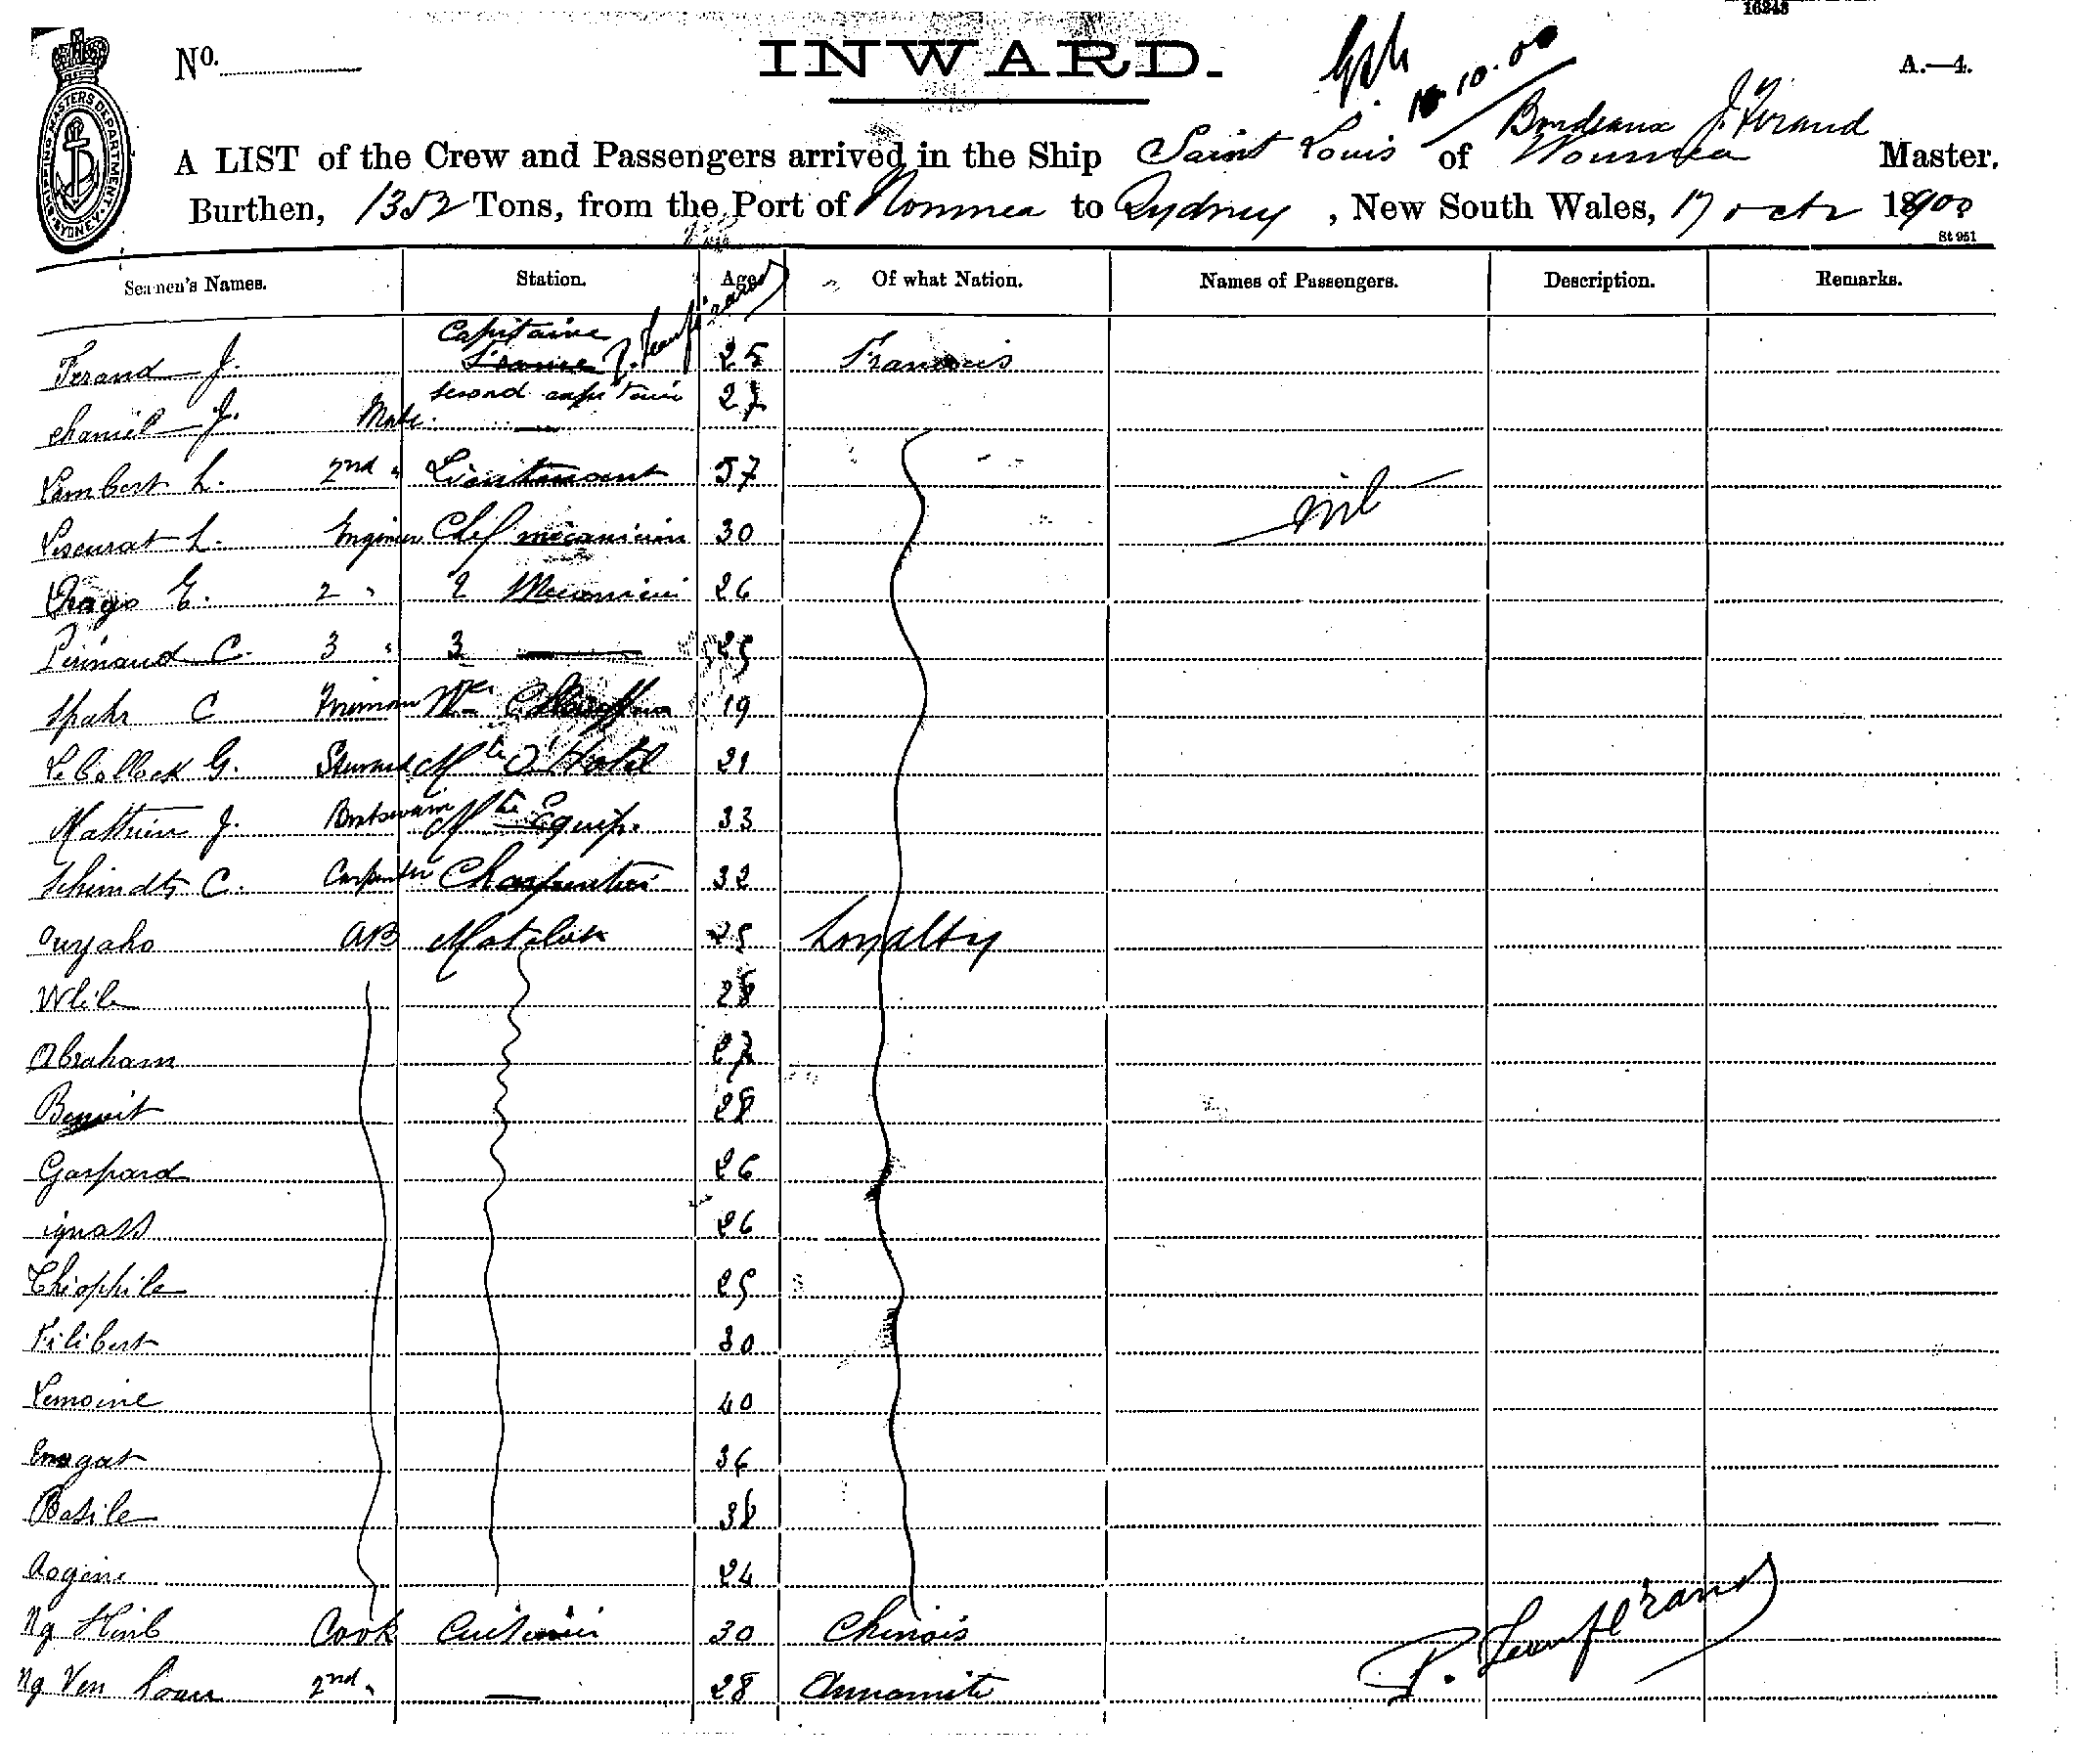 16243
No.
INWARD.
A.—4.
10.10.00
Bordeaux J. Ferand
A LIST of the Crew and Passengers arrived in the Ship Saint Louis of Noumea Master.
Burthen, 1352 Tons, from the Port of Noumea to Sydney, New South Wales, 17 octr 1900
St 951
SHIPPING MASTERS DEPARTMENT SYDNEY
Seamen's Names. Station. Age Of what Nation. Names of Passengers. Description. Remarks.
Ferand J. Capitaine 25 Francais
Chaniel J. Mate second capitaine 27
Lambert L. 2nd " Lieutenant 57 nil
Lescurat L. Engineer Chef mecanicien 30
Drago E. 2 " 2 Mecanicien 26
Perinaud C. 3 " 3 — 25
Spahr C Fireman Chauffeur 19
Le Collock G. Steward Mtre d'Hotel 21
Mathieu J. Boatswain Mtre Equip. 33
Schimdt C. Carpenter Charpentier 32
Ouyaho AB Matelot 25 Loyalty
Wlile 28
Abraham 27
Benoit 28
Gaspard 26
ignass 26
Théophile 25
Filibert 30
Lemoine 40
Enagat 36
Basile 38
Aogine 24
Ng Hinb Cook Cuisinier 30 Chinois
Ng Ven Loau 2nd " — 28 Annamite